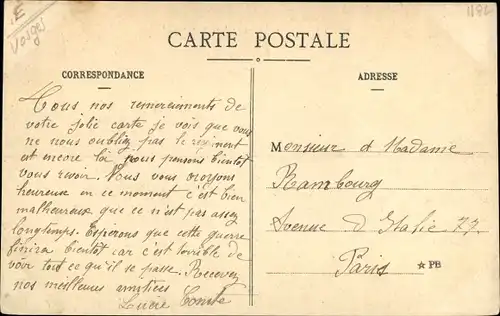 E
Vosges
1182
CARTE POSTALE
CORRESPONDANCE
Tous nos remerciements de
votre jolie carte je vois que vous
ne nous oubliez pas le régiment
est encore là nous pensons bientot
vous revoir. Vous vous croyons
heureux en ce moment c'est bien
malheureux que ce n'est pas assez
longtemps. Esperons que cette guerre
finira bientot car c'est terrible de
voir tout ce qu'il se passe. Recevez
nos meilleures amitiées
Lucie
ADRESSE
Monsieur et Madame
Rambourg
Avenue d Italie 77
Paris
★ PB